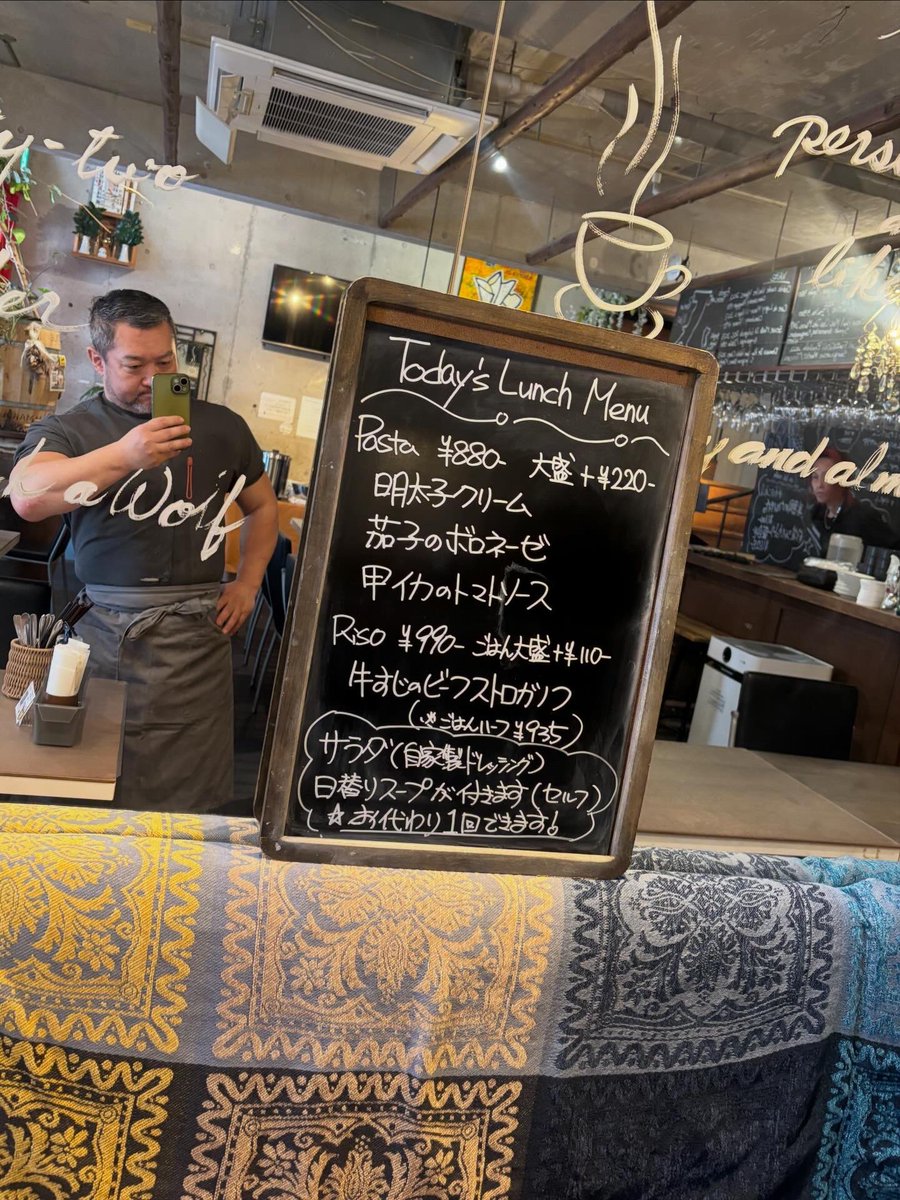 y-two
er
k a Wolf
perso
like
y and alm
Today's Lunch Menu
Pasta ¥880- 大盛+¥220-
明太子クリーム
茄子のボロネーゼ
甲イカのトマトソース
Riso ¥990- ごはん大盛+¥110-
牛すじのビーフストロガノフ
(※ごはんハーフ ¥935)
サラダ(自家製ドレッシング)
日替りスープが付きます(セルフ)
☆お代わり1回できます!